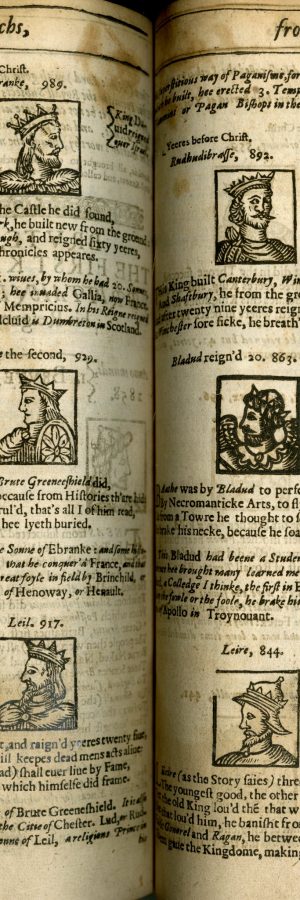 chs,
Christ.
ranke, 989.
King Da-
uid reigned
ouer Israel
he Castle he did found,
rk, he built new from the ground:
ugh, and reigned sixty yeeres,
hronicles appeares.
wiues, by whom he had 20. Sonnes
hee inuaded Gallia, now France,
Mempricius. In his Reigne reigned
lcluid is Dumbreton in Scotland.
the second, 929.
Brute Greeneshield did,
because from Histories th'are hid:
rul'd, that's all I of him read,
hee lyeth buried.
e Sonne of Ebranke: and some
that he conquer'd France, and that
reat foyle in field by Brinchild, or
of Henoway, or Henault.
Leil. 917.
t, and raign'd yeeres twenty fiue,
ill keepes dead mens acts aliue:
ad) shall euer liue by Fame,
which himselfe did frame.
of Brute Greeneshield. It is
the Citie of Chester. Lud, or Rud-
onne of Leil, a religious Prince in
his
fro
erstitious way of Paganisme, for
he built, hee erected 3. Temp
or Pagan Bishops in the
Yeeres before Christ.
Rudhudibrasse, 892.
This King built Canterbury, Win
And Shaftsbury, he from the gro
after twenty nine yeeres reign
Winchester sore sicke, he breath'
Bladud reign'd 20. 863.
Bathe was by Bladud to perfe
By Necromanticke Arts, to fl
from a Towre he thought to
brake his necke, because he soa
This Bladud had beene a Studen
hee brought many learned me
a Colledge I thinke, the first in E
the fowle or the foole, he brake his
of Apollo in Troynouant.
Leire, 844.
Leire (as the Story saies) three
The youngest good, the other
the old King lou'd thē that w
that lou'd him, he banisht from
Gonorel and Ragan, he betwee
gaue the Kingdome, making